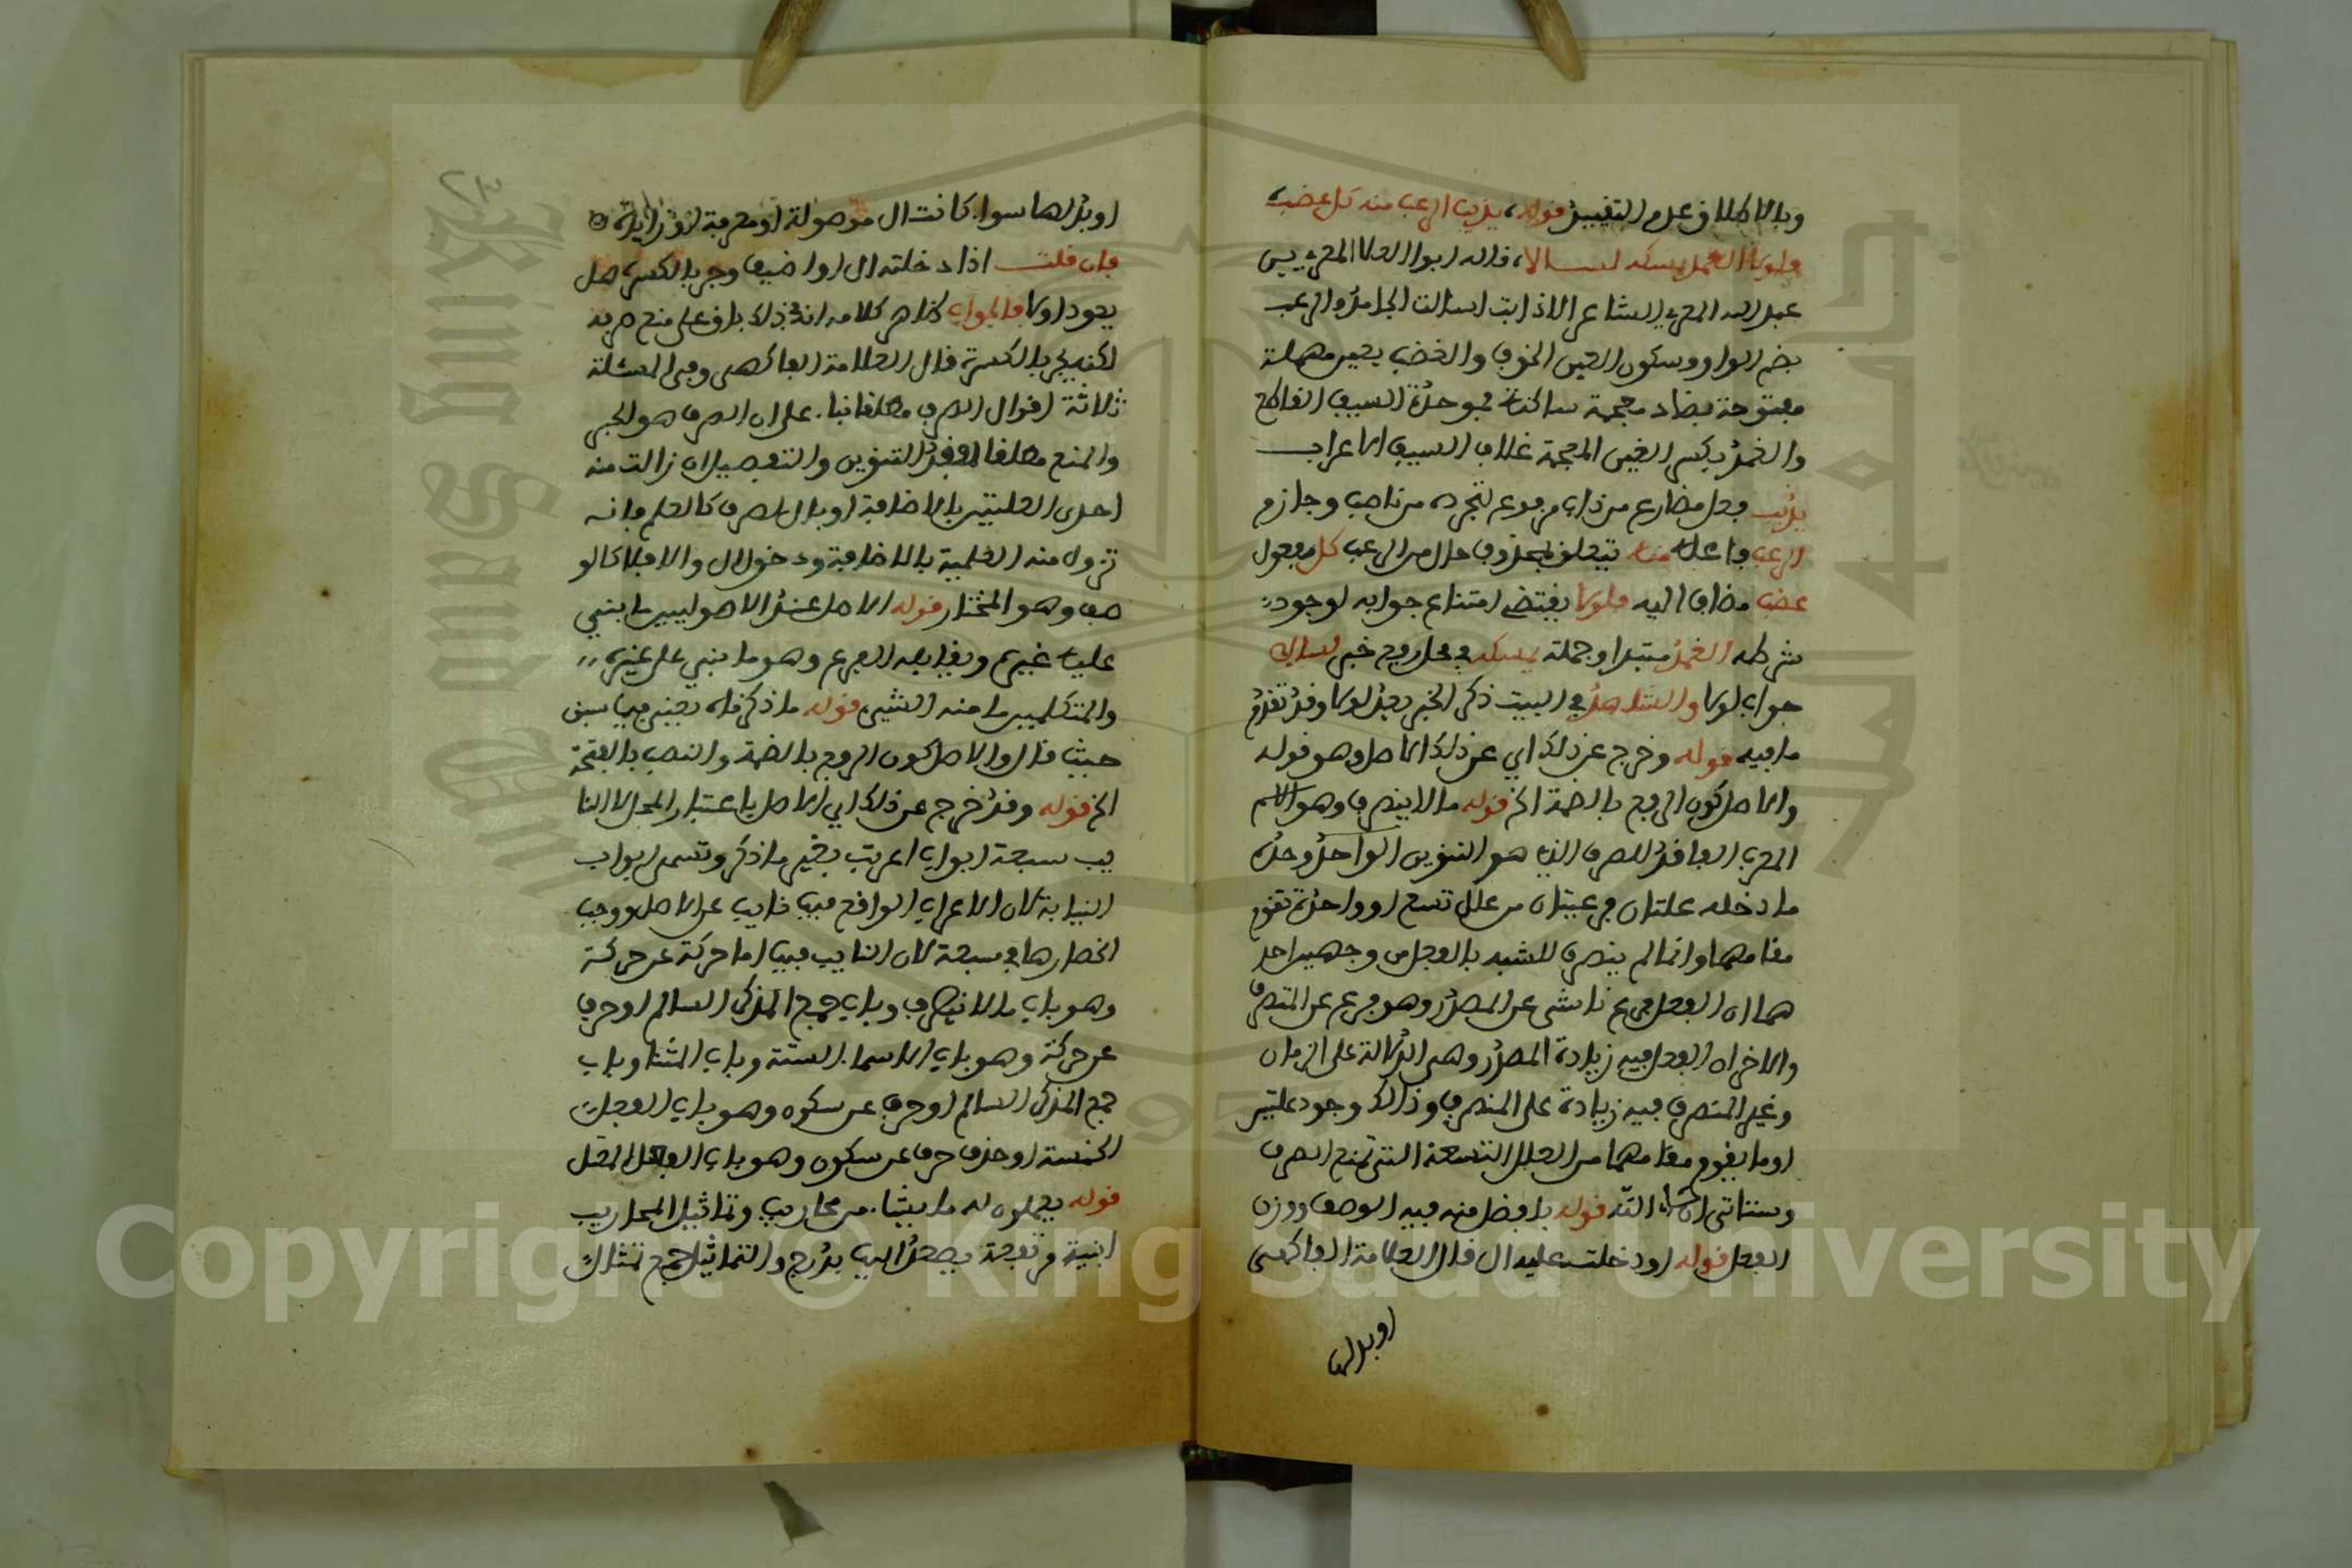 وبالاطلاق عدم التقييد قوله، يذيب الرعب منه كل عضب،
فلولا الغمد يمسكه لسالا، قاله ابو العلا المعري يس
عبد الله المعري الشاعر الاذابت اسالت الجامد والرعب
بضم الراو وسكون العين الخوف والغضب بعين مهملة
مفتوحة بضاد معجمة ساكنة فموحدة السيف القاطع
والغمد بكسر الغين المعجمة غلاف السيف الاعراب
يذيب فعل مضارع من ذاب مرفوع لتجرده من ناصب وجازم
الرعب فاعله منه يتعلق بمحذوف حال من الرعب كل مفعول
عضب مضاف اليه فلولا يقتضي امتناع جوابه لوجود
شرطه الغمد مبتدا وجملة يمسكه في محل رفع خبر لسالا
جواب لولا والشاهد في البيت ذكر الخبر بعد لولا وقد تقدم
ما فيه قوله وخرج عن ذلك اي عن ذلك الاصل وهو قوله
والاصل كون الرفع بالضمة الخ قوله ما لا ينصرف وهو الاسم
المعرب الفاقد للصرف الذي هو التنوين الواحد وحده
ما دخله علتان فرعيتان من علل تسع او واحدة تقوم
مقامهما وانما لم ينصرف للشبه بالفعل من وجهين احد
هما ان الفعل فرع ناشي عن المصدر وهو فرع عن المتصرف
والاخر ان الفعل فيه زيادة المصدر وهي الدلالة على الزمان
وغير المنصرف فيه زيادة على المنصرف وذلك وجود علتين
او ما يقوم مقامهما من العلل التسعة التي تمنع الصرف
وستاتي ان شا الله قوله بافضل منه فيه الوصف ووزن
الفعل قوله او دخلت عليه ال قال العلامة الفاكهي
او بدلها
او بدلها سوا. كانت ال موصولة او معرفة او زايدة،
فان قلت اذا دخلته ال او اضيف وجر بالكسرة هل
يعود اولا فالجواب ظاهر كلامه انه في ذلك باق على منع صرفه
لكنه يجر بالكسرة قال العلامة الفاكهي وفي المسئلة
ثلاثة اقوال الصرف مطلقا بنا. على ان الصرف هو الجر
والمنع مطلقا لفقد التنوين والتفصيل ان زالت منه
احدى العلتين بالاضافة او بال للصرف كالعلم فانه
تزول منه العلمية بالاضافة ودخول ال والا فلا كالو
صف وهو المختار قوله الاصل عند الاصوليين ما بنى
عليه غيره ويقابله الفرع وهو ما بني على غيره
والمتكلمين ما منه الشيء قوله ما ذكرناه يعني فيما سبق
حيث قال والاصل كون الرفع بالضمة والنصب بالفتحة
الخ قوله وقد خرج عن ذلك اي الاصل باعتبار المحل النا
يب سبعة ابواب اعربت بغير ما ذكر وتسمى ابواب
النيابة لان الاعراب الواقع فيها نايب عن الاصل ووجب
انحصارها في سبعة لان النايب فيها اما حركة عن حركة
وهو باب ما لا ينصرف وباب جمع المذكر السالم او حرف
عن حركة وهو باب الاسما. الستة وباب المثنا وباب
جمع المذكر السالم او حرف عن سكون وهو باب الافعال
الخمسة او حذف حرف عن سكون وهو باب الفعل المعتل
قوله يعملون له ما يشا. من محاريب وتماثيل المحاريب
ابنية مرتفعة يصعد اليها بدرج والتماثيل جمع تمثال
Copyright © King Saud University